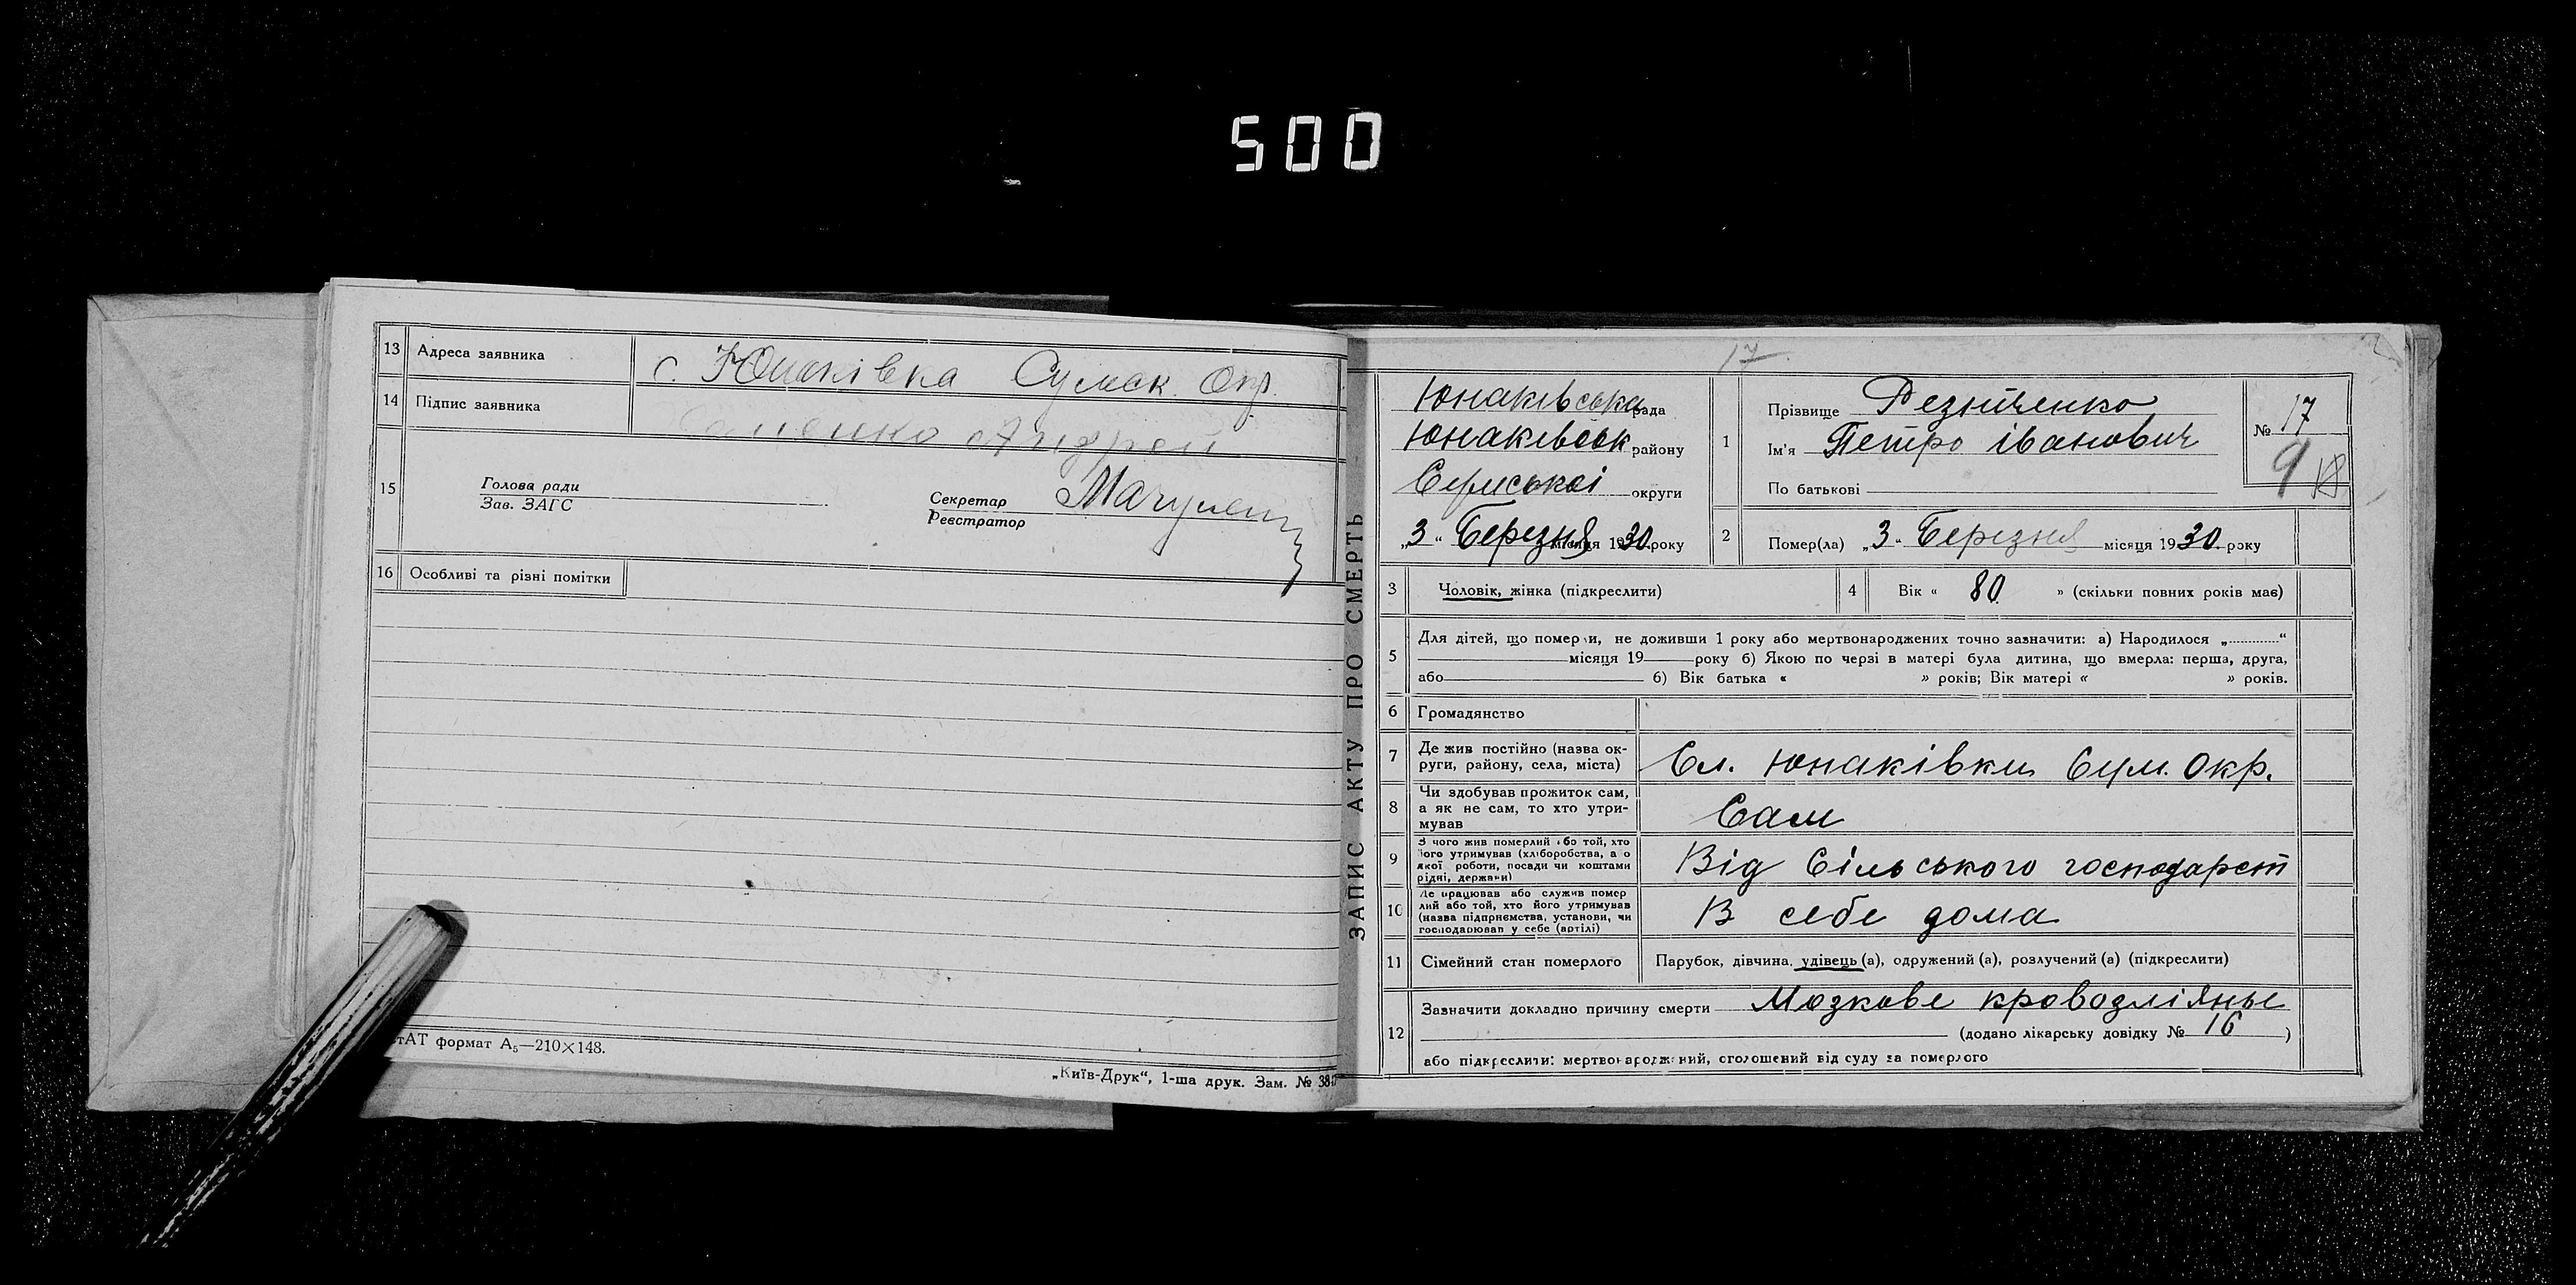 500
13 Адреса заявника с. Юнаківка Сумск. Окр.
14 Підпис заявника Андрей
15 Голова ради
Зав. ЗАГС
Секретар
Реєстратор
16 Особливі та різні помітки
формат А₅—210×148.
„Київ-Друк“, 1-ша друк. Зам. №
ЗАПИС АКТУ ПРО СМЕРТЬ
17
Юнаківська рада
Юнаківськ району
Сумської округи
„3“ Березня місяця 1930 року
1 Прізвище Резніченко
Ім'я Петро іванович
По батькові
№ 17
9
2 Помер(ла) „3“ Березня місяця 1930 року
3 Чоловік, жінка (підкреслити)
4 Вік « 80 » (скільки повних років має)
5 Для дітей, що померли, не доживши 1 року або мертвонароджених точно зазначити: а) Народилося „............“
місяця 19 року б) Якою по черзі в матері була дитина, що вмерла: перша, друга,
або б) Вік батька « » років; Вік матері « » років.
6 Громадянство
7 Де жив постійно (назва ок-
руги, району, села, міста) Сл. Юнаківки Сум. Окр.
8 Чи здобував прожиток сам,
а як не сам, то хто утри-
мував Сам
9 З чого жив померлий або той, хто
його утримував (хліборобства, а о
якої роботи, посади чи коштами
рідні, держави) Від Сільського господарст
10 Де працював або служив помер
лий або той, хто його утримував
(назва підприємства, установи, чи
господарював у себе (артілі) В себе дома
11 Сімейний стан померлого Парубок, дівчина, удівець (а), одружений (а), розлучений (а) (підкреслити)
12 Зазначити докладно причину смерти Мозкове кровозліянье
(додано лікарську довідку № 16 )
або підкреслити: мертвонароджений, оголошений від суду за померлого